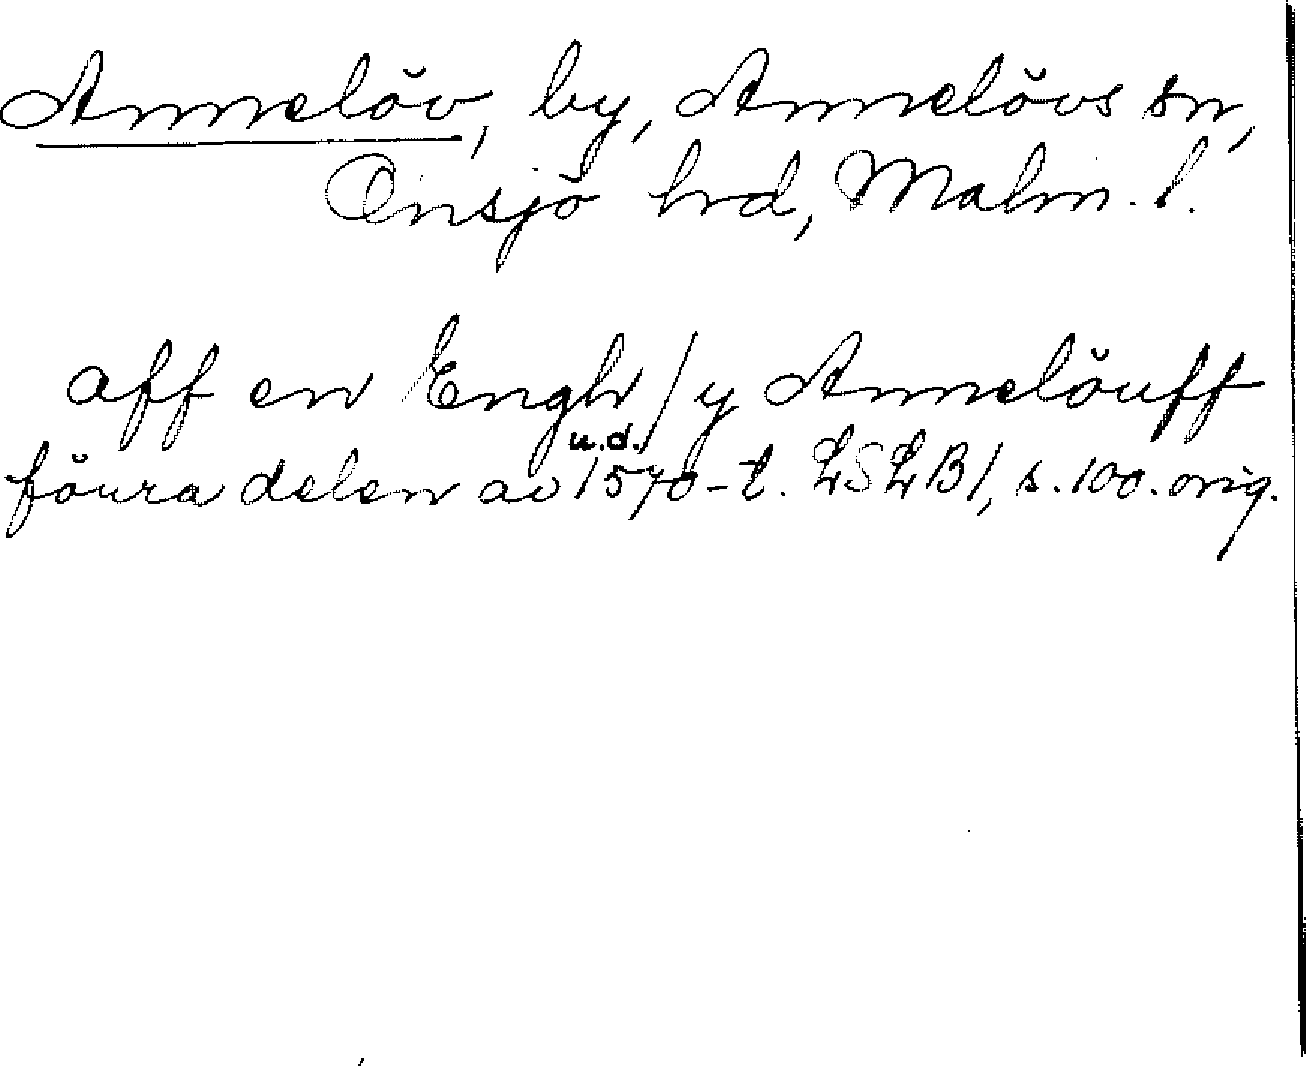 Annelöv, by, Annelövs sn,
Onsjö hrd, Malm. l.
aff en Engh / y Annelöuff
u.d.
föura delen av 1570-t. LSLB1, s. 100. orig.